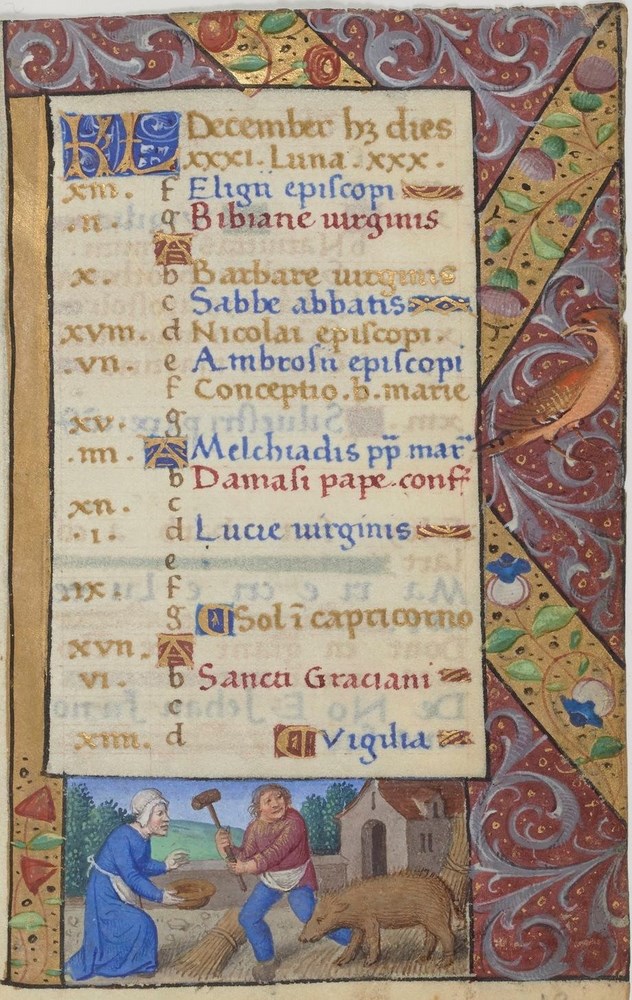 KL December hʒ dies
xxxi. Luna. xxx.
xiii. f Eligii episcopi
.ii. g Bibiane uirginis
A
x. b Barbare uirginis
c Sabbe abbatis
xviii. d Nicolai episcopi.
vii. e Ambrosii episcopi
f Conceptio. b. marie
xv. g
.iiii. A Melchiadis pp̄ mar
b Damasi pape conf
xii. c
.i. d Lucie uirginis
e
ix. f
g Sol ī capricorno
xvii. A
vi. b Sancti Graciani
c
xiiii. d Vigilia